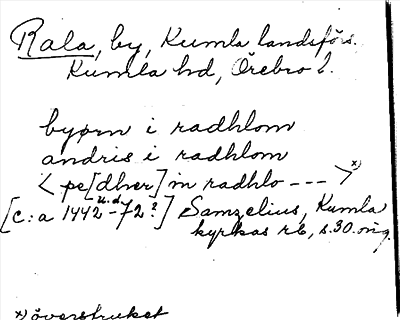 Rala, by, Kumla landsförs.
Kumla hd, Örebro l.
byørn i radhlom
andris i radhlom
< pe[dher] in radhlo --- > x)
[c:a 1442 u.d. -72?] Samzelius, Kumla
kyrkas rb, s. 30. orig.
x) överstruket